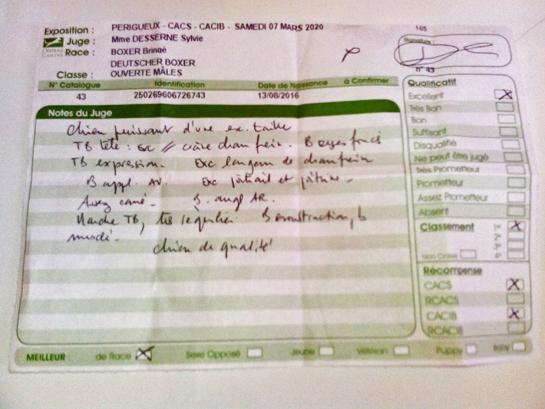 Exposition : PERIGUEUX - CACS - CACIB - SAMEDI 07 MARS 2020
Juge : Mme DESSERNE Sylvie
Race : BOXER Bringé
DEUTSCHER BOXER
Classe : OUVERTE MÂLES
165
Signature
n° 43
N° Catalogue Identification Date de Naissance à Confirmer
43 250269606726743 13/08/2016
Notes du Juge
Chien puissant d'une exc. taille
TB tête : exc // crâne chanfrein. B yeux foncés
TB expression. Exc longueur de chanfrein
B appl. AV. Exc poitrail et poitrine.
Assez carré. B. angl AR.
Marche TB, très régulier B construction, b
musclé.
chien de qualité
Qualificatif
Excellent X
Très Bon
Bon
Suffisant
Disqualifié
Ne peut être jugé
Très Prometteur
Prometteur
Assez Prometteur
Absent
Classement 1er X
2e
3e
Non Classé 4e
Récompense
CACS X
RCACS
CACIB X
RCACIB
MEILLEUR : de Race X Sexe Opposé Jeune Vétéran Puppy Baby